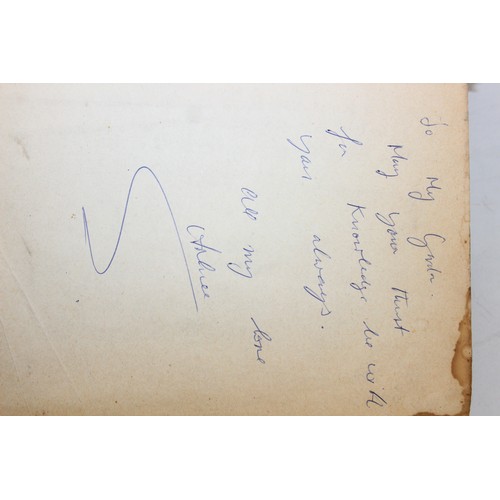 To My
May your thirst
for Knowledge be with
you always.
All my love